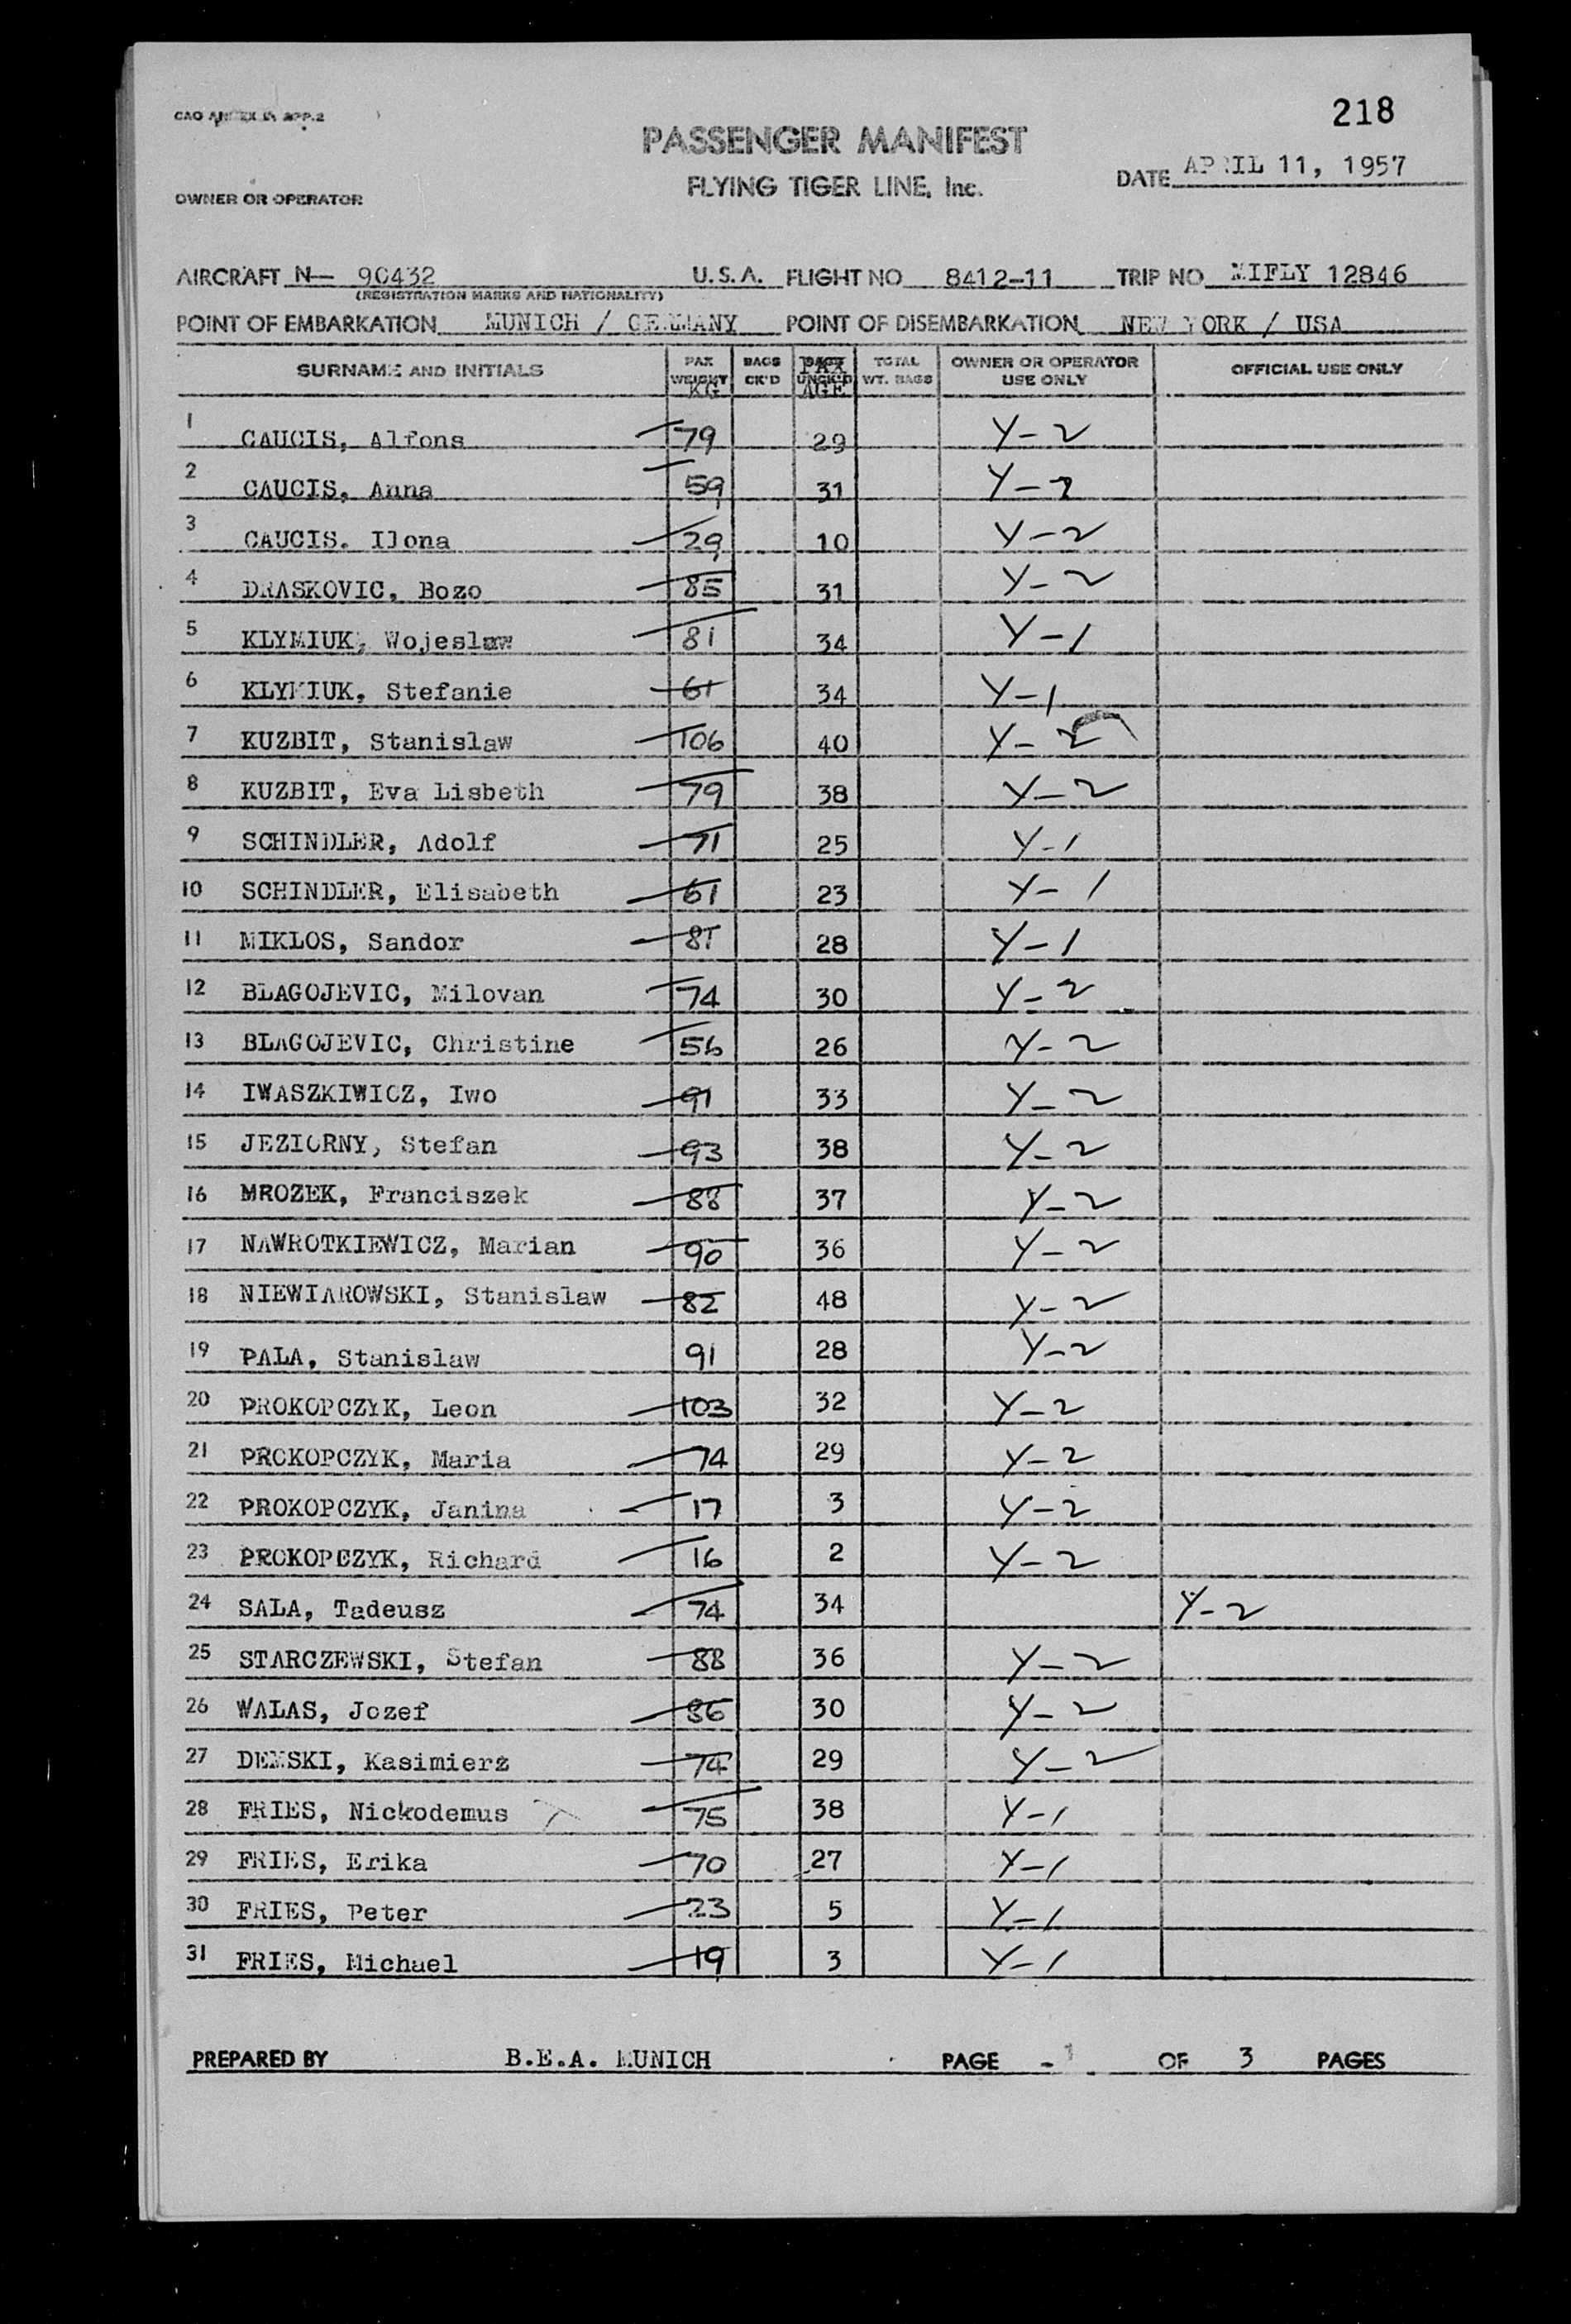 218
PASSENGER MANIFEST
FLYING TIGER LINE, Inc.
DATE APRIL 11, 1957
OWNER OR OPERATOR
AIRCRAFT N— 90432 U.S.A. FLIGHT NO 8412-11 TRIP NO MIFLY 12846
(REGISTRATION MARKS AND NATIONALITY)
POINT OF EMBARKATION MUNICH / GERMANY POINT OF DISEMBARKATION NEW YORK / USA
SURNAME AND INITIALS PAX WEIGHT KG BAGS CK'D PAX AGE TOTAL WT. BAGS OWNER OR OPERATOR USE ONLY OFFICIAL USE ONLY
1 CAUCIS, Alfons 79 29 Y-2
2 CAUCIS, Anna 59 31 Y-2
3 CAUCIS. Ilona 29 10 Y-2
4 DRASKOVIC, Bozo 85 31 Y-2
5 KLYMIUK, Wojeslaw 81 34 Y-1
6 KLYMIUK, Stefanie 61 34 Y-1
7 KUZBIT, Stanislaw 106 40 Y-2
8 KUZBIT, Eva Lisbeth 79 38 Y-2
9 SCHINDLER, Adolf 71 25 Y-1
10 SCHINDLER, Elisabeth 61 23 Y-1
11 MIKLOS, Sandor 81 28 Y-1
12 BLAGOJEVIC, Milovan 74 30 Y-2
13 BLAGOJEVIC, Christine 56 26 Y-2
14 IWASZKIWICZ, Iwo 91 33 Y-2
15 JEZIORNY, Stefan 93 38 Y-2
16 MROZEK, Franciszek 88 37 Y-2
17 NAWROTKIEWICZ, Marian 90 36 Y-2
18 NIEWIAROWSKI, Stanislaw 82 48 Y-2
19 PALA, Stanislaw 91 28 Y-2
20 PROKOPCZYK, Leon 103 32 Y-2
21 PROKOPCZYK, Maria 74 29 Y-2
22 PROKOPCZYK, Janina 17 3 Y-2
23 PROKOPCZYK, Richard 16 2 Y-2
24 SALA, Tadeusz 74 34 Y-2
25 STARCZEWSKI, Stefan 88 36 Y-2
26 WALAS, Jozef 86 30 Y-2
27 DEMSKI, Kasimierz 74 29 Y-2
28 FRIES, Nickodemus 75 38 Y-1
29 FRIES, Erika 70 27 Y-1
30 FRIES, Peter 23 5 Y-1
31 FRIES, Michael 19 3 Y-1
PREPARED BY B.E.A. MUNICH PAGE - 1 OF 3 PAGES